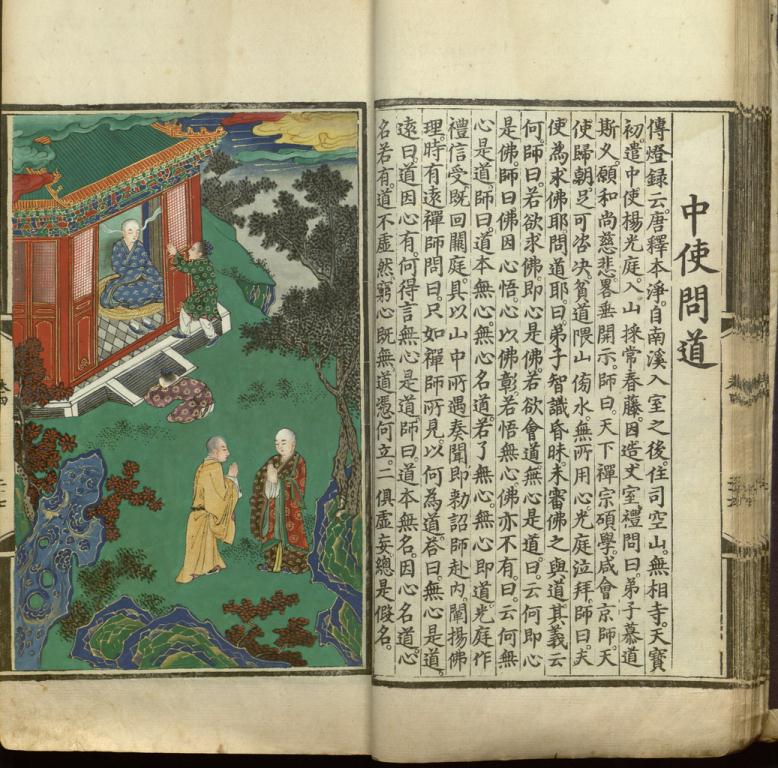 中使問道
傳燈錄云。唐釋本淨。自南溪入室之後。住司空山。無相寺。天寶
初。遣中使楊光庭。入山採常春藤。因造丈室。禮問曰。弟子慕道
斯久。願和尚慈悲畧垂開示。師曰。天下禪宗碩學。咸會京師。天
使歸朝。足可咨决。貧道隈山傍水。無所用心。光庭泣拜。師曰。天
使為求佛耶。問道耶。曰。弟子智識昏昧。未審佛之與道。其義云
何。師曰。若欲求佛。即心是佛。若欲會道。無心是道。曰。云何即心
是佛。師曰。佛因心悟。心以佛彰。若悟無心。佛亦不有。曰。云何無
心是道。師曰。道本無心。無心名道。若了無心。無心即道。光庭作
禮信受。既回闕庭。具以山中所遇奏聞。即勅詔師赴內。闡揚佛
理。時有遠禪師問曰。只如禪師所見。以何為道。答曰。無心是道。
遠曰。道因心有。何得言無心是道。師曰。道本無名。因心名道。心
名若有。道不虛然。窮心既無。道憑何立。二俱虛妄。總是假名。